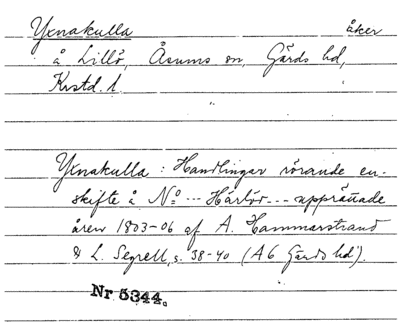 Yxnakulla åker
å Lillö, Åsums sn, Gärds hd,
Krstd. l.
Yxnakulla : Handlingar rörande en-
skifte å No --- Härlöv --- upprättade
åren 1803-06 af A. Hammarstrand
& L. Segrell, s. 38-40 (A6 Gärds hd).
Nr 5344.